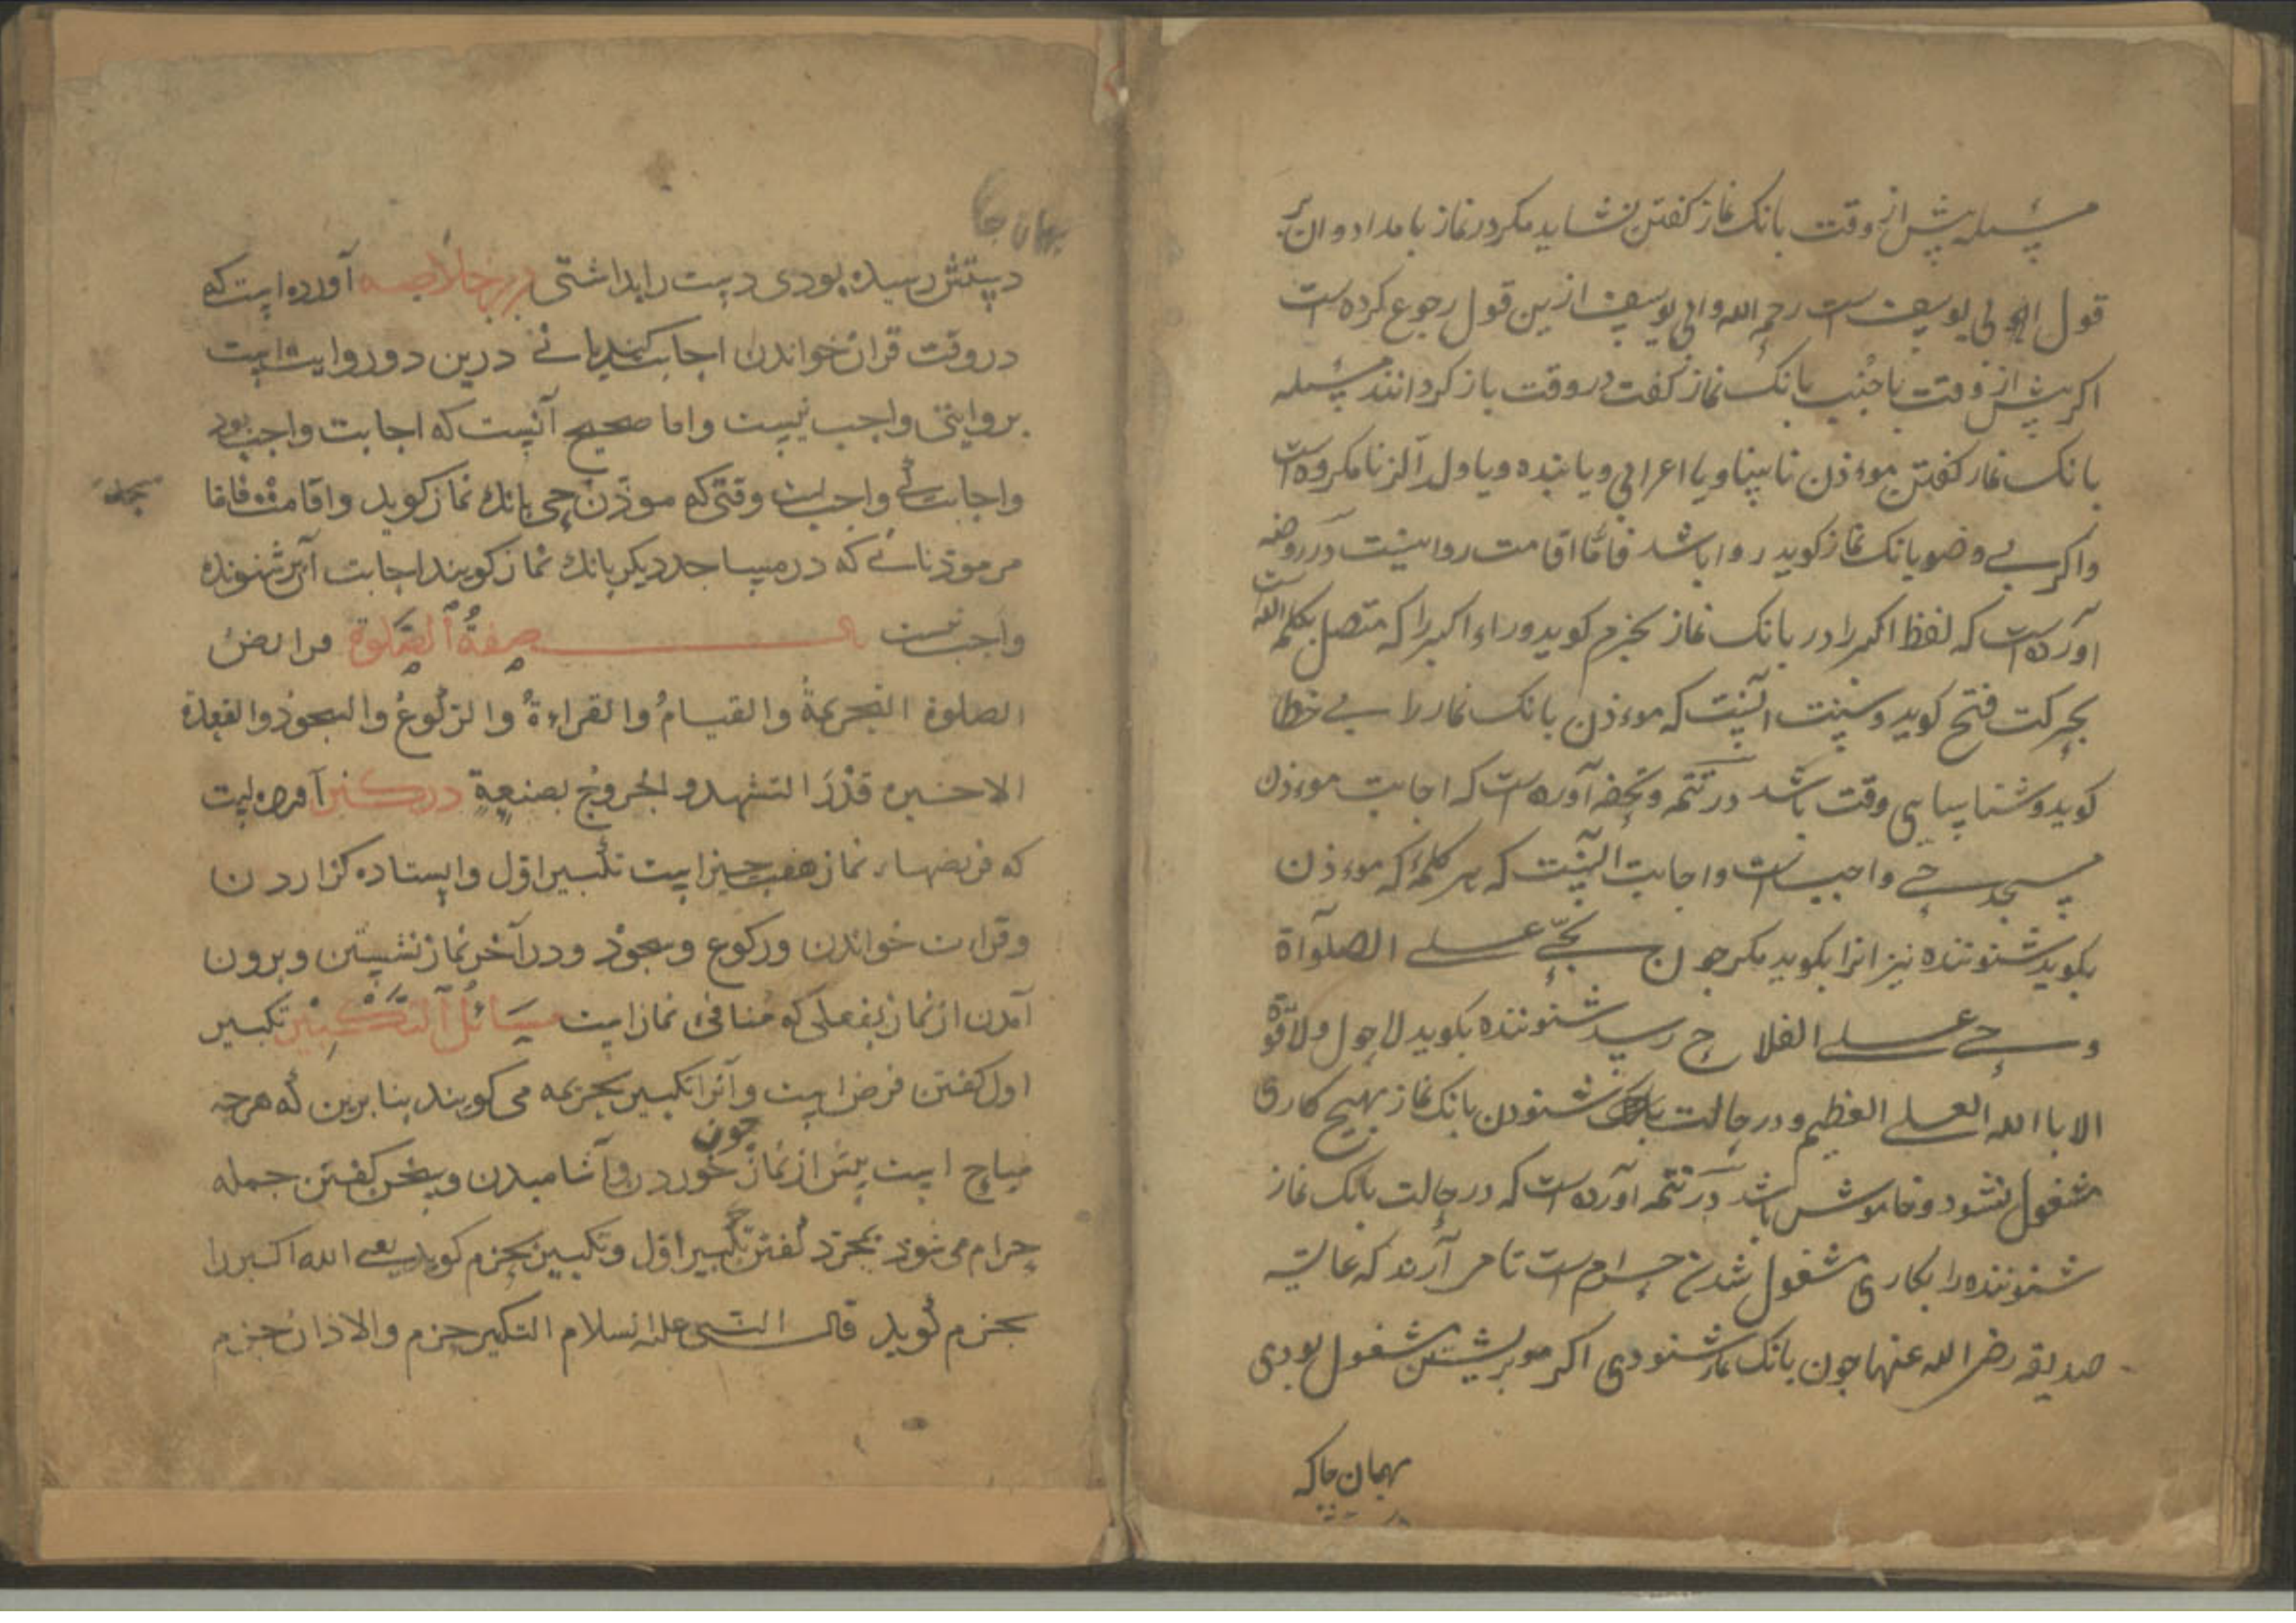 مسئله پیش از وقت بانک نماز کفتن نشاید مکر در نماز بامداد و ان بر
قول ابی یوسف است رحمه الله و ابی یوسف ازین قول رجوع کرده است
اکر پیش از وقت یا جنب بانک نماز کفت در وقت باز کردانند مسئله
بانک نماز کفتن موءذن نابینا و یا اعرابی و یا بنده و یا ولد الزنا مکروه است
واکر بی وضو بانک نماز کوید روا باشد فاما اقامت روا نیست در روضه
آورده است که لفظ اکبر را در بانک نماز بجزم کوید وراء اکبر را که متصل بکلمه الله است
بحرکت فتح کوید و سنت آنست که موءذن بانک نماز را بی خطا
کوید و شناسای وقت باشد در تتمه و تحفه آورده است که اجابت موءذن
مسجد حی واجب است و اجابت آنست که هر کلمهٔ که موءذن
بکوید شنونده نیز انرا بکوید مکر جون بحی علی الصلوآة
و حی علی الفلاح رسید شنونده بکوید لاحول ولا قوة
الا باالله العلی العظیم و در حالت شنودن بانک نماز بهیج کاری
مشغول نشود و خاموش باشد در تتمه آورده است که در حالت بانک نماز
شنونده را بکاری مشغول شدن حرام است تا می آرند که عایشه
صدیقه رضی الله عنها جون بانک نماز شنودی اکر موبر شتن مشغول بودی
بهمان جاکه
بهمان جا
دستش رسیده بودی دست را بداشتی در خلاصه آورده است که
در وقت قران خواندن اجابت کند یا نی درین دو روایت است
بروایتی واجب نیست و اما صحیح آنست که اجابت واجب بود
و اجابت واجب است وقتی که موذن حی بانک نماز کوید و اقامت فاما
مسجد
مر موذنانی که در مساجد دیکر بانک نماز کویند اجابت آن بر شنونده
واجب نیست صِفةُ الصَّلوة فرایض
الصلوة التحریمةُ والقیامُ والقراءةُ والرکوعُ والسجودُ والقعدة
الاخیره قَدْرَ التشهد والخروج بصنعهِ در کنز آورده است
که فریضهاء نماز هفت جیز است تکبیر اول و ایستاده کزاردن
و قراءت خواندن و رکوع و سجود و در آخر نماز نشستن و برون
آمدن از نماز بفعلی که منافی نماز است مسَائلُ التَّکْبِیْر تکبیر
اول کفتن فرض است و آنرا تکبیر تحریمه می کویند بنابرین که هرجه
مباح است بیش از نماز جون خوردن و آشامیدن و سخن کفتن جمله
حرام می شود بمجرد کفتن تکبیر اول و تکبیر بجزم کوید یعنی الله اکبر را
بجزم کوید قال النبی علیه السلام التکبیر جزم والاذان جزم